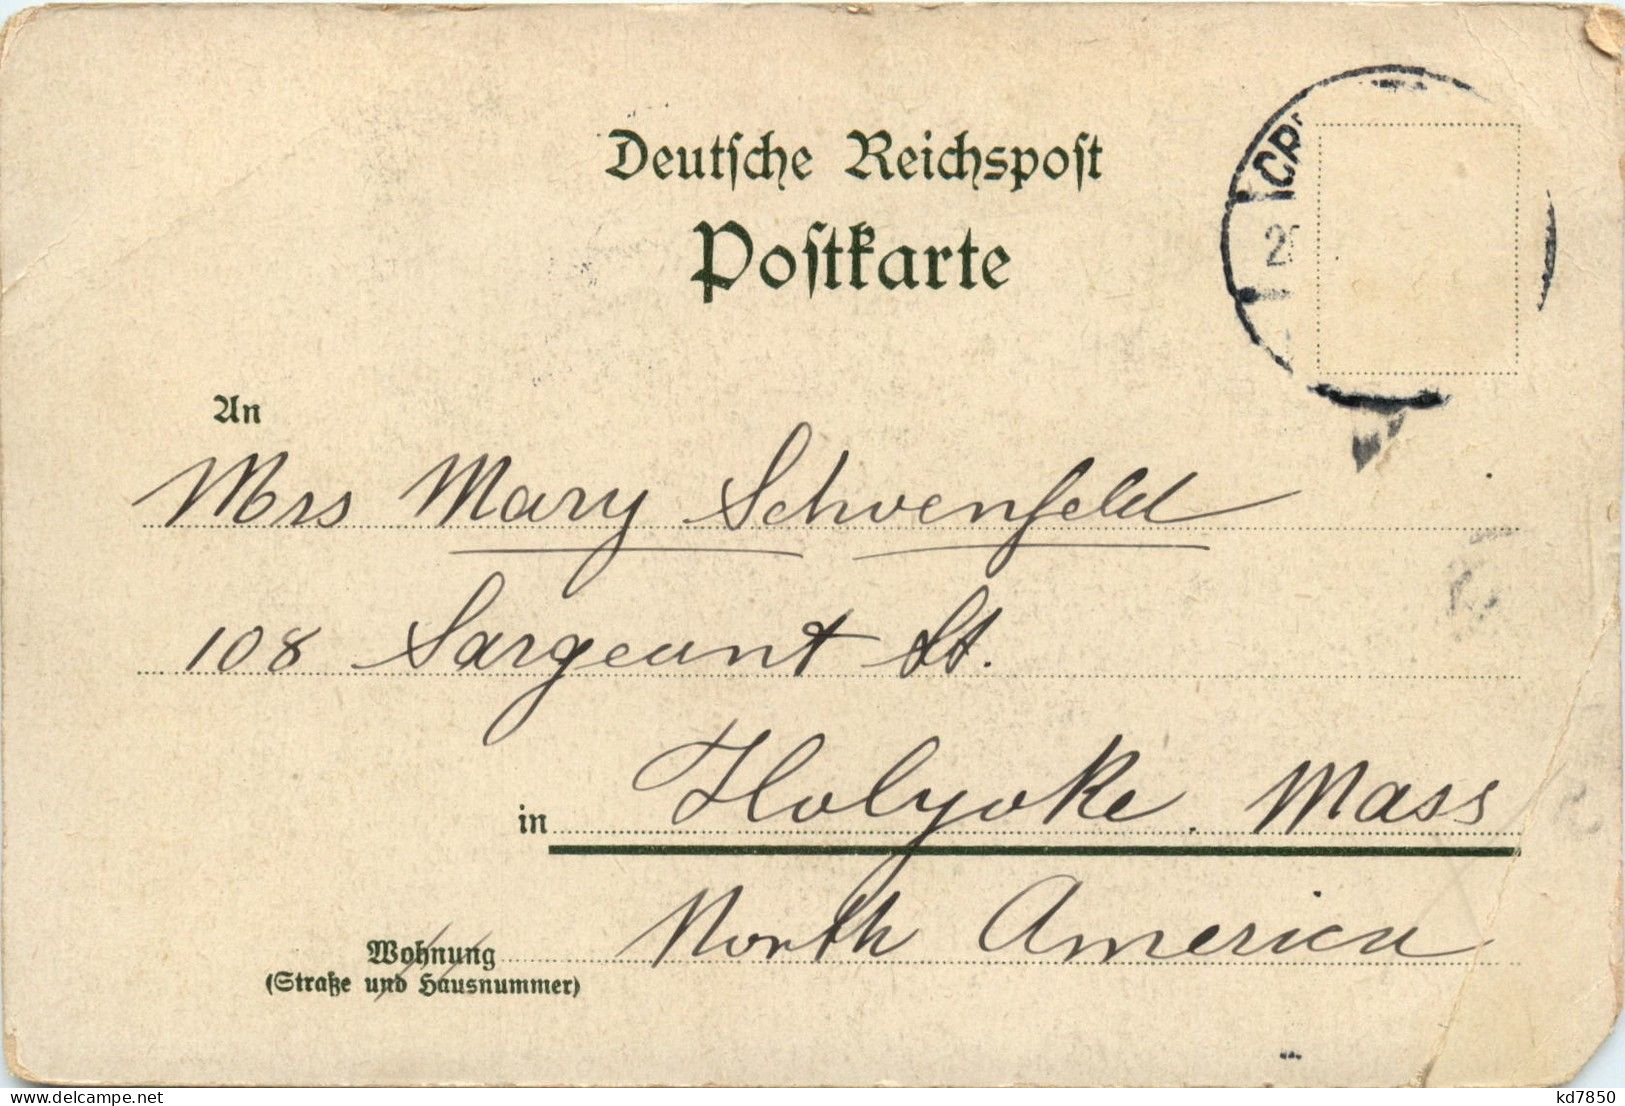 Deutsche Reichspost
Postkarte
An
Mrs Mary Schoenfeld
108 Sargeant St.
in Holyoke. Mass
North America
Wohnung
(Straße und Hausnummer)
kd7850